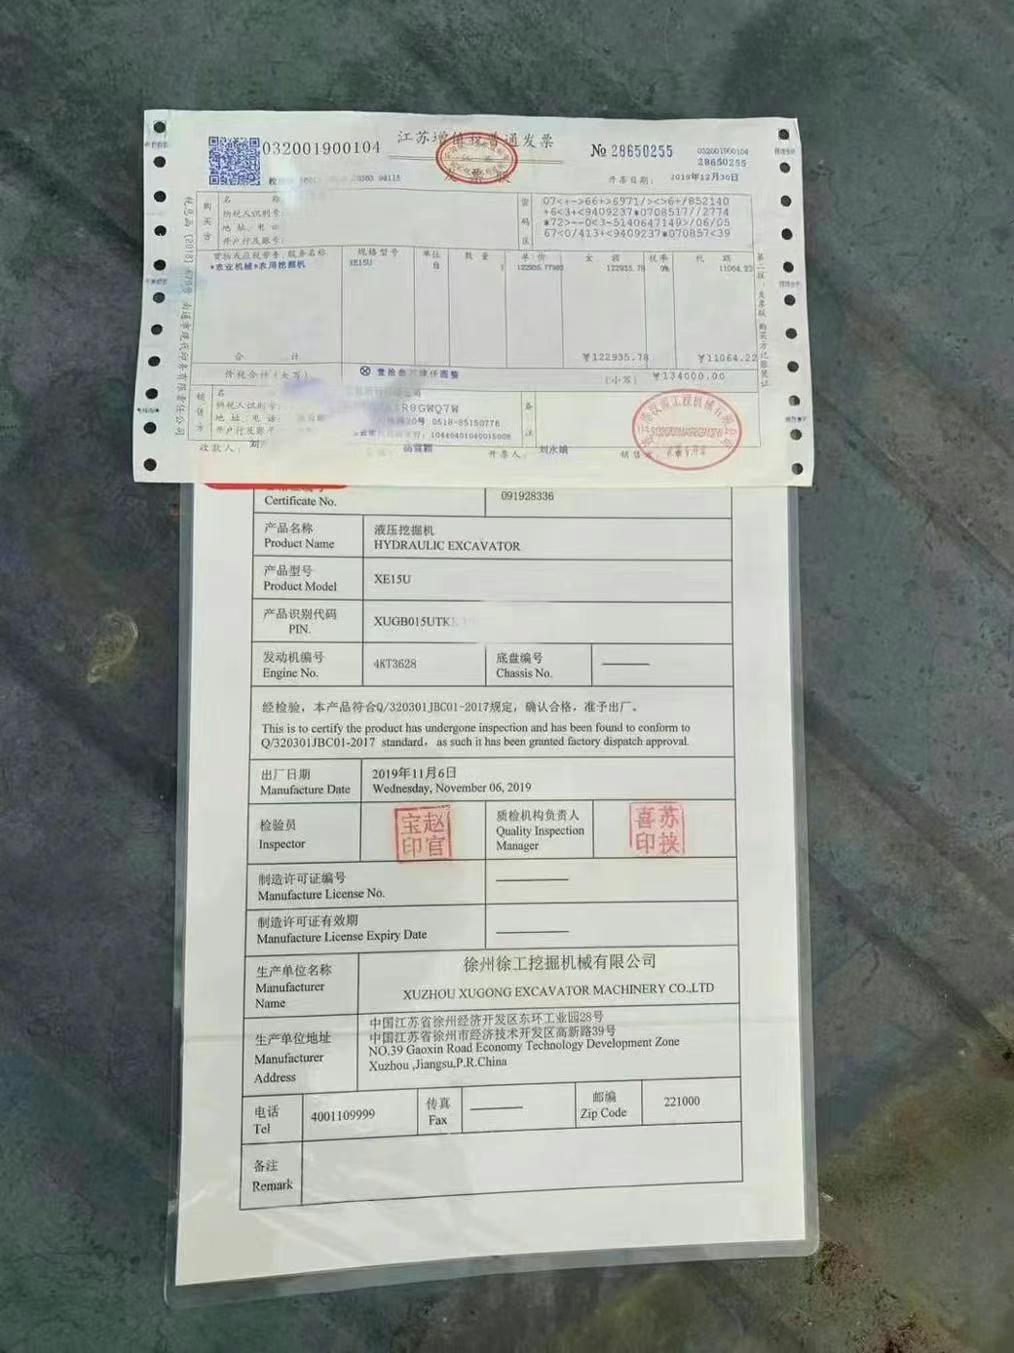 江苏增值税普通发票
032001900104
№ 28650255
032001900104
28650255
开票日期： 2019年12月30日
购买方
名 称
纳税人识别号:
地 址、电 话:
开户行及账号:
密码区
07<+->66+>6971/><>6+/852140
+6<3+<9409237*0708517//2774
*72>--0<3-5140647149>/06/05
67<0/413+<9409237*070857<39
货物或应税劳务、服务名称 规格型号 单位 数 量 单 价 金 额 税率 税 额
*农业机械*农用挖掘机 XE15U 台 1 122935.77982 122935.78 9% 11064.22
合 计 ￥122935.78 ￥11064.22
价税合计(大写) (小写) ￥134000.00
销售方
名
纳税人识别号: R8GWQ7W
地 址、电 话: 20号 0518-85150776
开户行及账号: 10440401040015008
备注
收款人: 开票人: 刘永娟
第二联：发票联 购买方记账凭证
Certificate No. 091928336
产品名称 液压挖掘机
Product Name HYDRAULIC EXCAVATOR
产品型号
Product Model XE15U
产品识别代码
PIN. XUGB015UTK
发动机编号 4KT3628 底盘编号
Engine No. Chassis No.
经检验，本产品符合Q/320301JBC01-2017规定，确认合格，准予出厂。
This is to certify the product has undergone inspection and has been found to conform to
Q/320301JBC01-2017 standard, as such it has been granted factory dispatch approval.
出厂日期 2019年11月6日
Manufacture Date Wednesday, November 06, 2019
检验员
Inspector
赵官宝印
质检机构负责人
Quality Inspection
Manager
苏挟喜印
制造许可证编号
Manufacture License No.
制造许可证有效期
Manufacture License Expiry Date
生产单位名称
Manufacturer
Name
徐州徐工挖掘机械有限公司
XUZHOU XUGONG EXCAVATOR MACHINERY CO.,LTD
生产单位地址
Manufacturer
Address
中国江苏省徐州经济开发区东环工业园28号
中国江苏省徐州市经济技术开发区高新路39号
NO.39 Gaoxin Road Economy Technology Development Zone
Xuzhou ,Jiangsu,P.R.China
电话 4001109999 传真 邮编 221000
Tel Fax Zip Code
备注
Remark